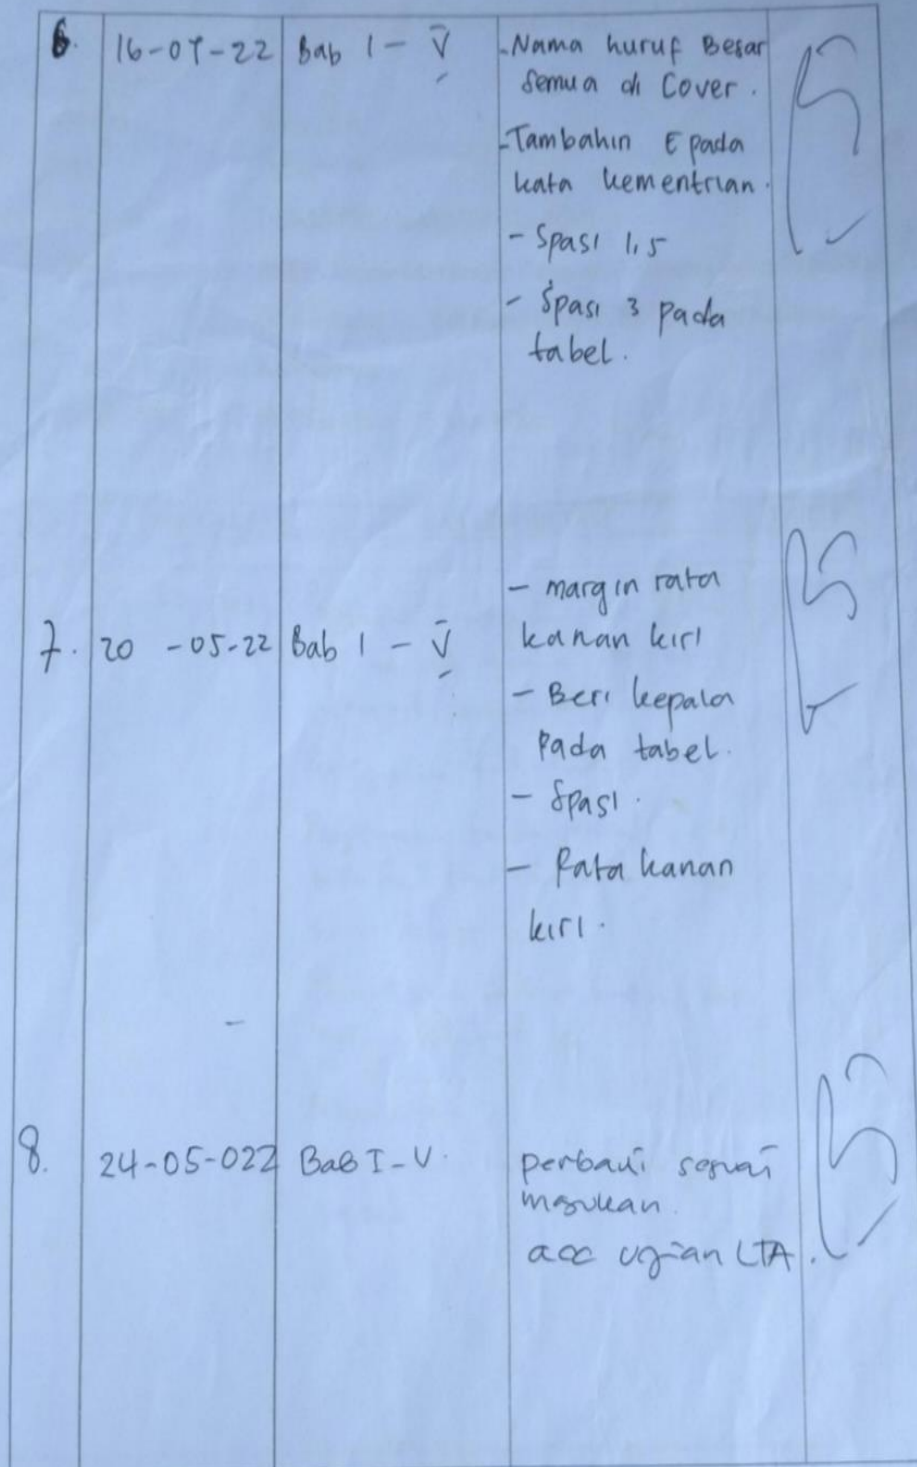 6. 16-07-22 Bab I - V - Nama huruf Besar
semua di Cover.
- Tambahin E pada
kata kementrian.
- Spasi 1,5
- Spasi 3 pada
tabel.
- margin rata
7. 20 -05-22 Bab I - V kanan kiri
- Beri kepala
Pada tabel.
- Spasi.
- Rata kanan
kiri.
8. 24-05-022 Bab I - V. perbaiki sesuai
masukan.
acc ujian LTA.